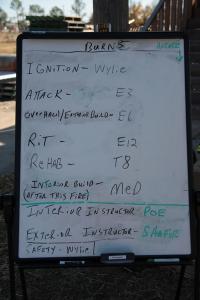 BURNS
IGNITION - Wylie
ATTACK - E3
OVERHAUL/EXTERIOR BUILD - E6
RiT - E12
REHAB - T8
INTERIOR BUILD - MED
(AFTER THIS FIRE)
INTERIOR INSTRUCTOR - POE
EXTERIOR INSTRUCTOR -
SAFETY - Wylie